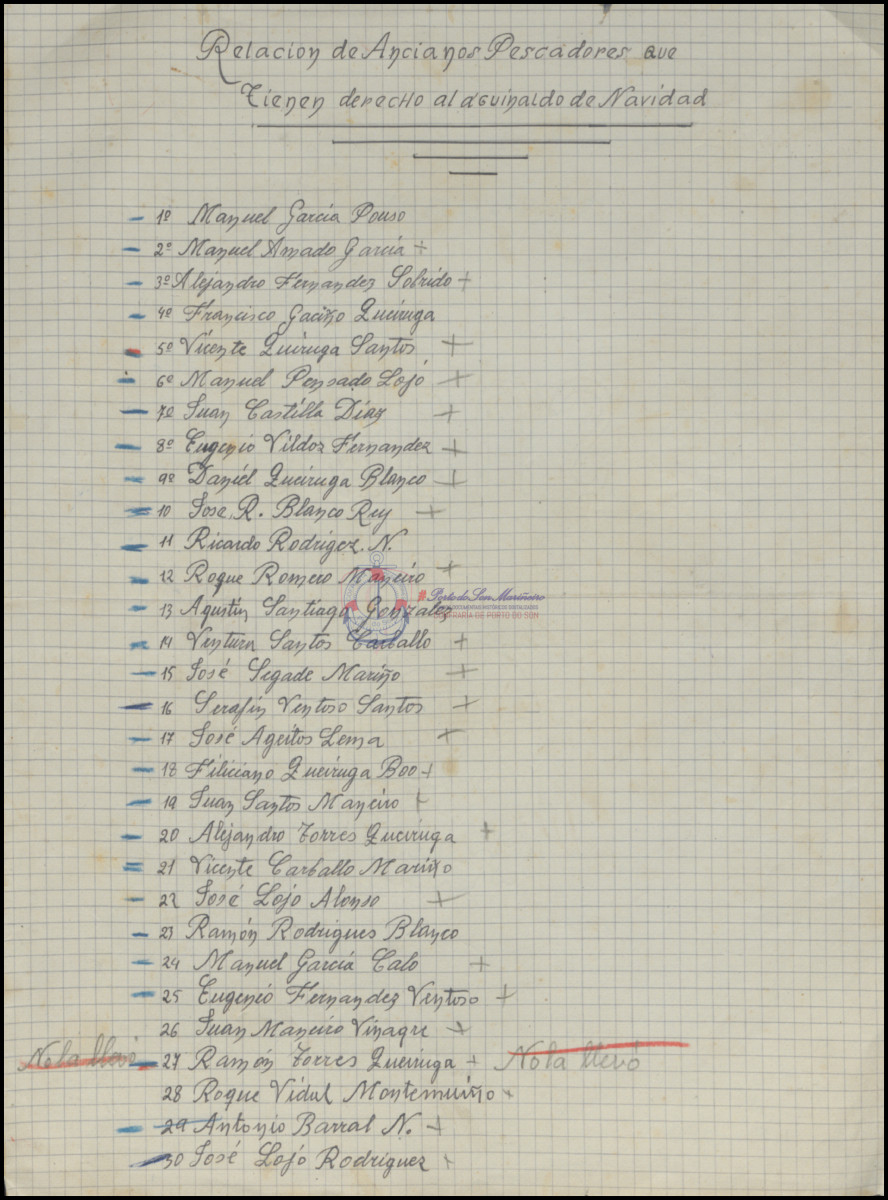 Relacion de Ancianos Pescadores que
Tienen derecho al aguinaldo de Navidad
1º Manuel Garcia Pouso
2º Manuel Amado Garcia +
3º Alejandro Fernandez Sobrido +
4º Francisco Gaciño Queiruga
5º Vicente Quiruga Santos +
6º Manuel Pensado Lojó +
7º Juan Castilla Diaz +
8º Eugenio Vildoz Fernandez +
9º Daniél Queiruga Blanco +
10 Jose R. Blanco Rey +
11 Ricardo Rodrigez. N.
12 Roque Romero Maneiro +
#Porto do Son Mariñeiro
13 Agustin Santiago Gonzalez
CONFRARÍA DE PORTO DO SON
14 Ventura Santos Carballo +
15 José Segade Mariño +
16 Serafin Ventoso Santos +
17 José Ageitos Lema +
18 Filiciano Queiruga Boo +
19 Juan Santos Maneiro +
20 Alejandro Torres Queiruga +
21 Vicente Carballo Mariño
22 José Lojo Alonso +
23 Ramón Rodrigues Blanco
24 Manuel García Calo +
25 Eugenio Fernandez Ventoso +
26 Juan Maneiro Vinagre +
No la llevó 27 Ramón Torres Queiruga + No la llevó
28 Roque Vidal Montemuiño +
29 Antonio Barral N. +
30 José Lojó Rodriguez +